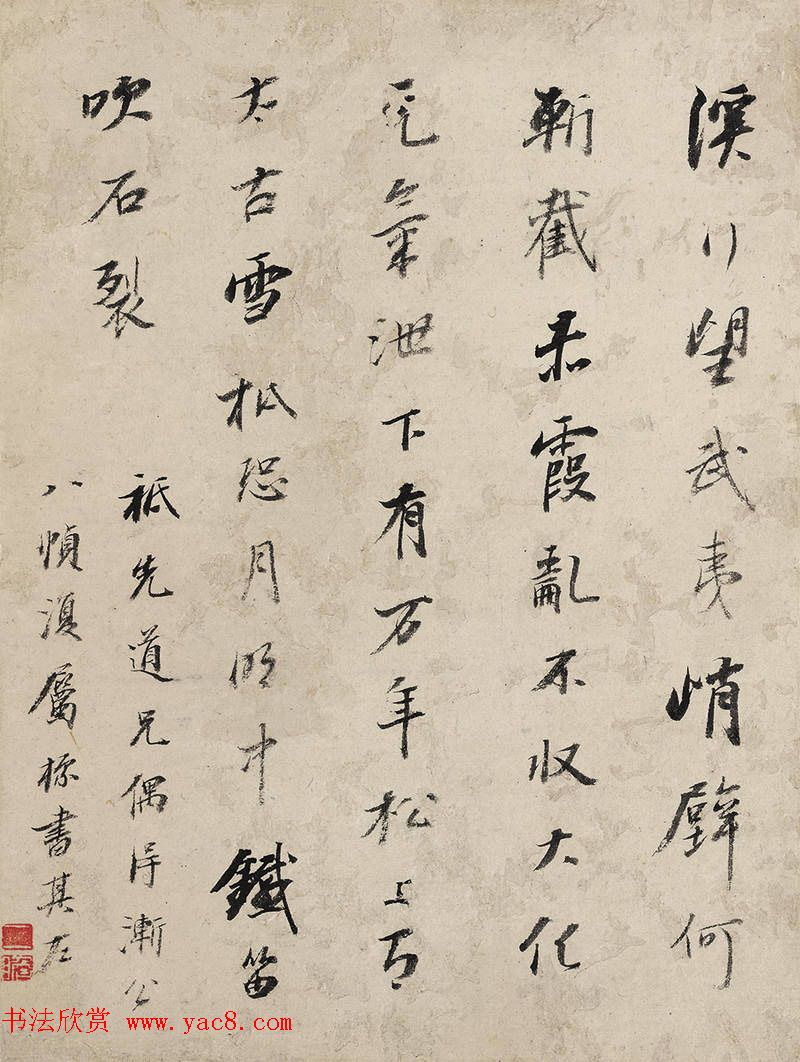 溪行望武夷峭壁何
斬截赤霞亂不收大化
元氣泄下有万年松上有
太古雪秪恐月明中鐵笛
吹石裂
祗先道兄偶得漸公
八幀湏屬標書其左
书法欣赏 www.yac8.com